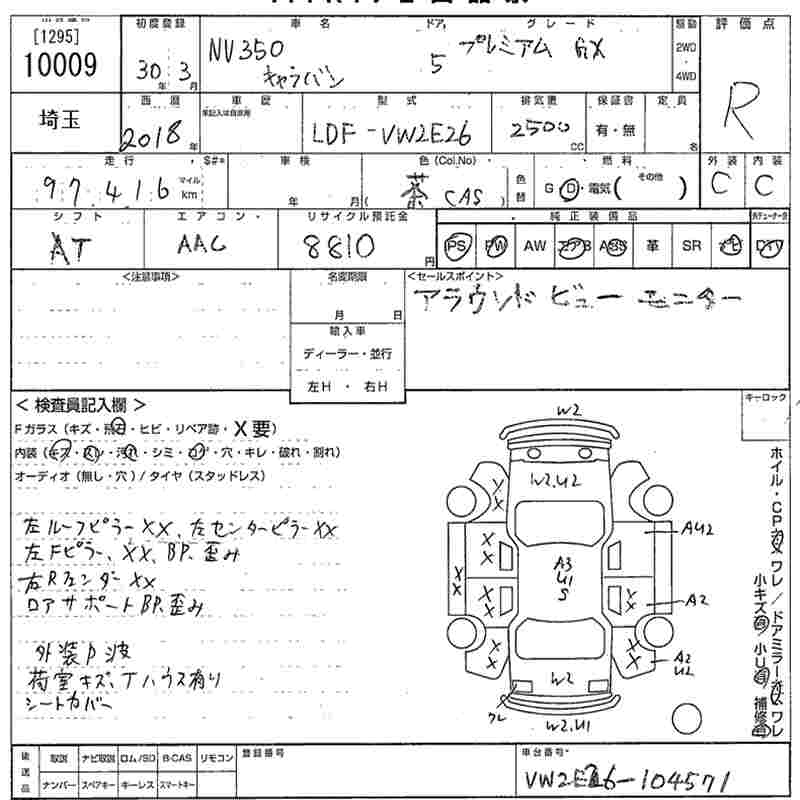 [1295]
10009
初度登録
30年 3月
車名
NV350
キャラバン
ドア
5
グレード
プレミアム GX
駆動
2WD
4WD
評価点
R
埼玉
西暦
2018年
車歴
未記入は自家用
型式
LDF-VW2E26
排気量
2500
CC
保証書
有・無
定員
名
走行
97,416
マイル
km
S#*
車検
年 月
色(Col.No)
茶 (CAS)
色替
燃料
G D・電気( その他 )
外装
C
内装
C
シフト
AT
エアコン
AAC
リサイクル預託金
8810
円
純正装備品
PS PW AW エアB ABS 革 SR ナビ DTV
<注意事項>
名変期限
月 日
輸入車
ディーラー・並行
左H・右H
<セールスポイント>
アラウンドビューモニター
< 検査員記入欄 >
Fガラス(キズ・飛石・ヒビ・リペア跡・X要)
内装(キズ・スレ・汚れ・シミ・コゲ・穴・キレ・破れ・割れ)
オーディオ(無し・穴)/タイヤ(スタッドレス)
左ルーフピラーXX、左センターピラーXX
左Fピラー、XX、BP、歪み
右Rフェンダー XX
ロアサポートBP、歪み
外装P波
荷室キズ、Tハウス有り
シートカバー
キーロック
W2
W2.U2
AU2
A3
U1
S
A2
A2
U2
W2
ワレ
W2.U1
XX
ホイル・CPカケ ワレ/ドアミラーカケ ワレ
小キズ有 小U有 補修有
後送品
取説 ナビ取説 ロム/SD B-CAS リモコン
ナンバー スペアキー キーレス スマートキー
登録番号
車台番号
VW2E26-104571